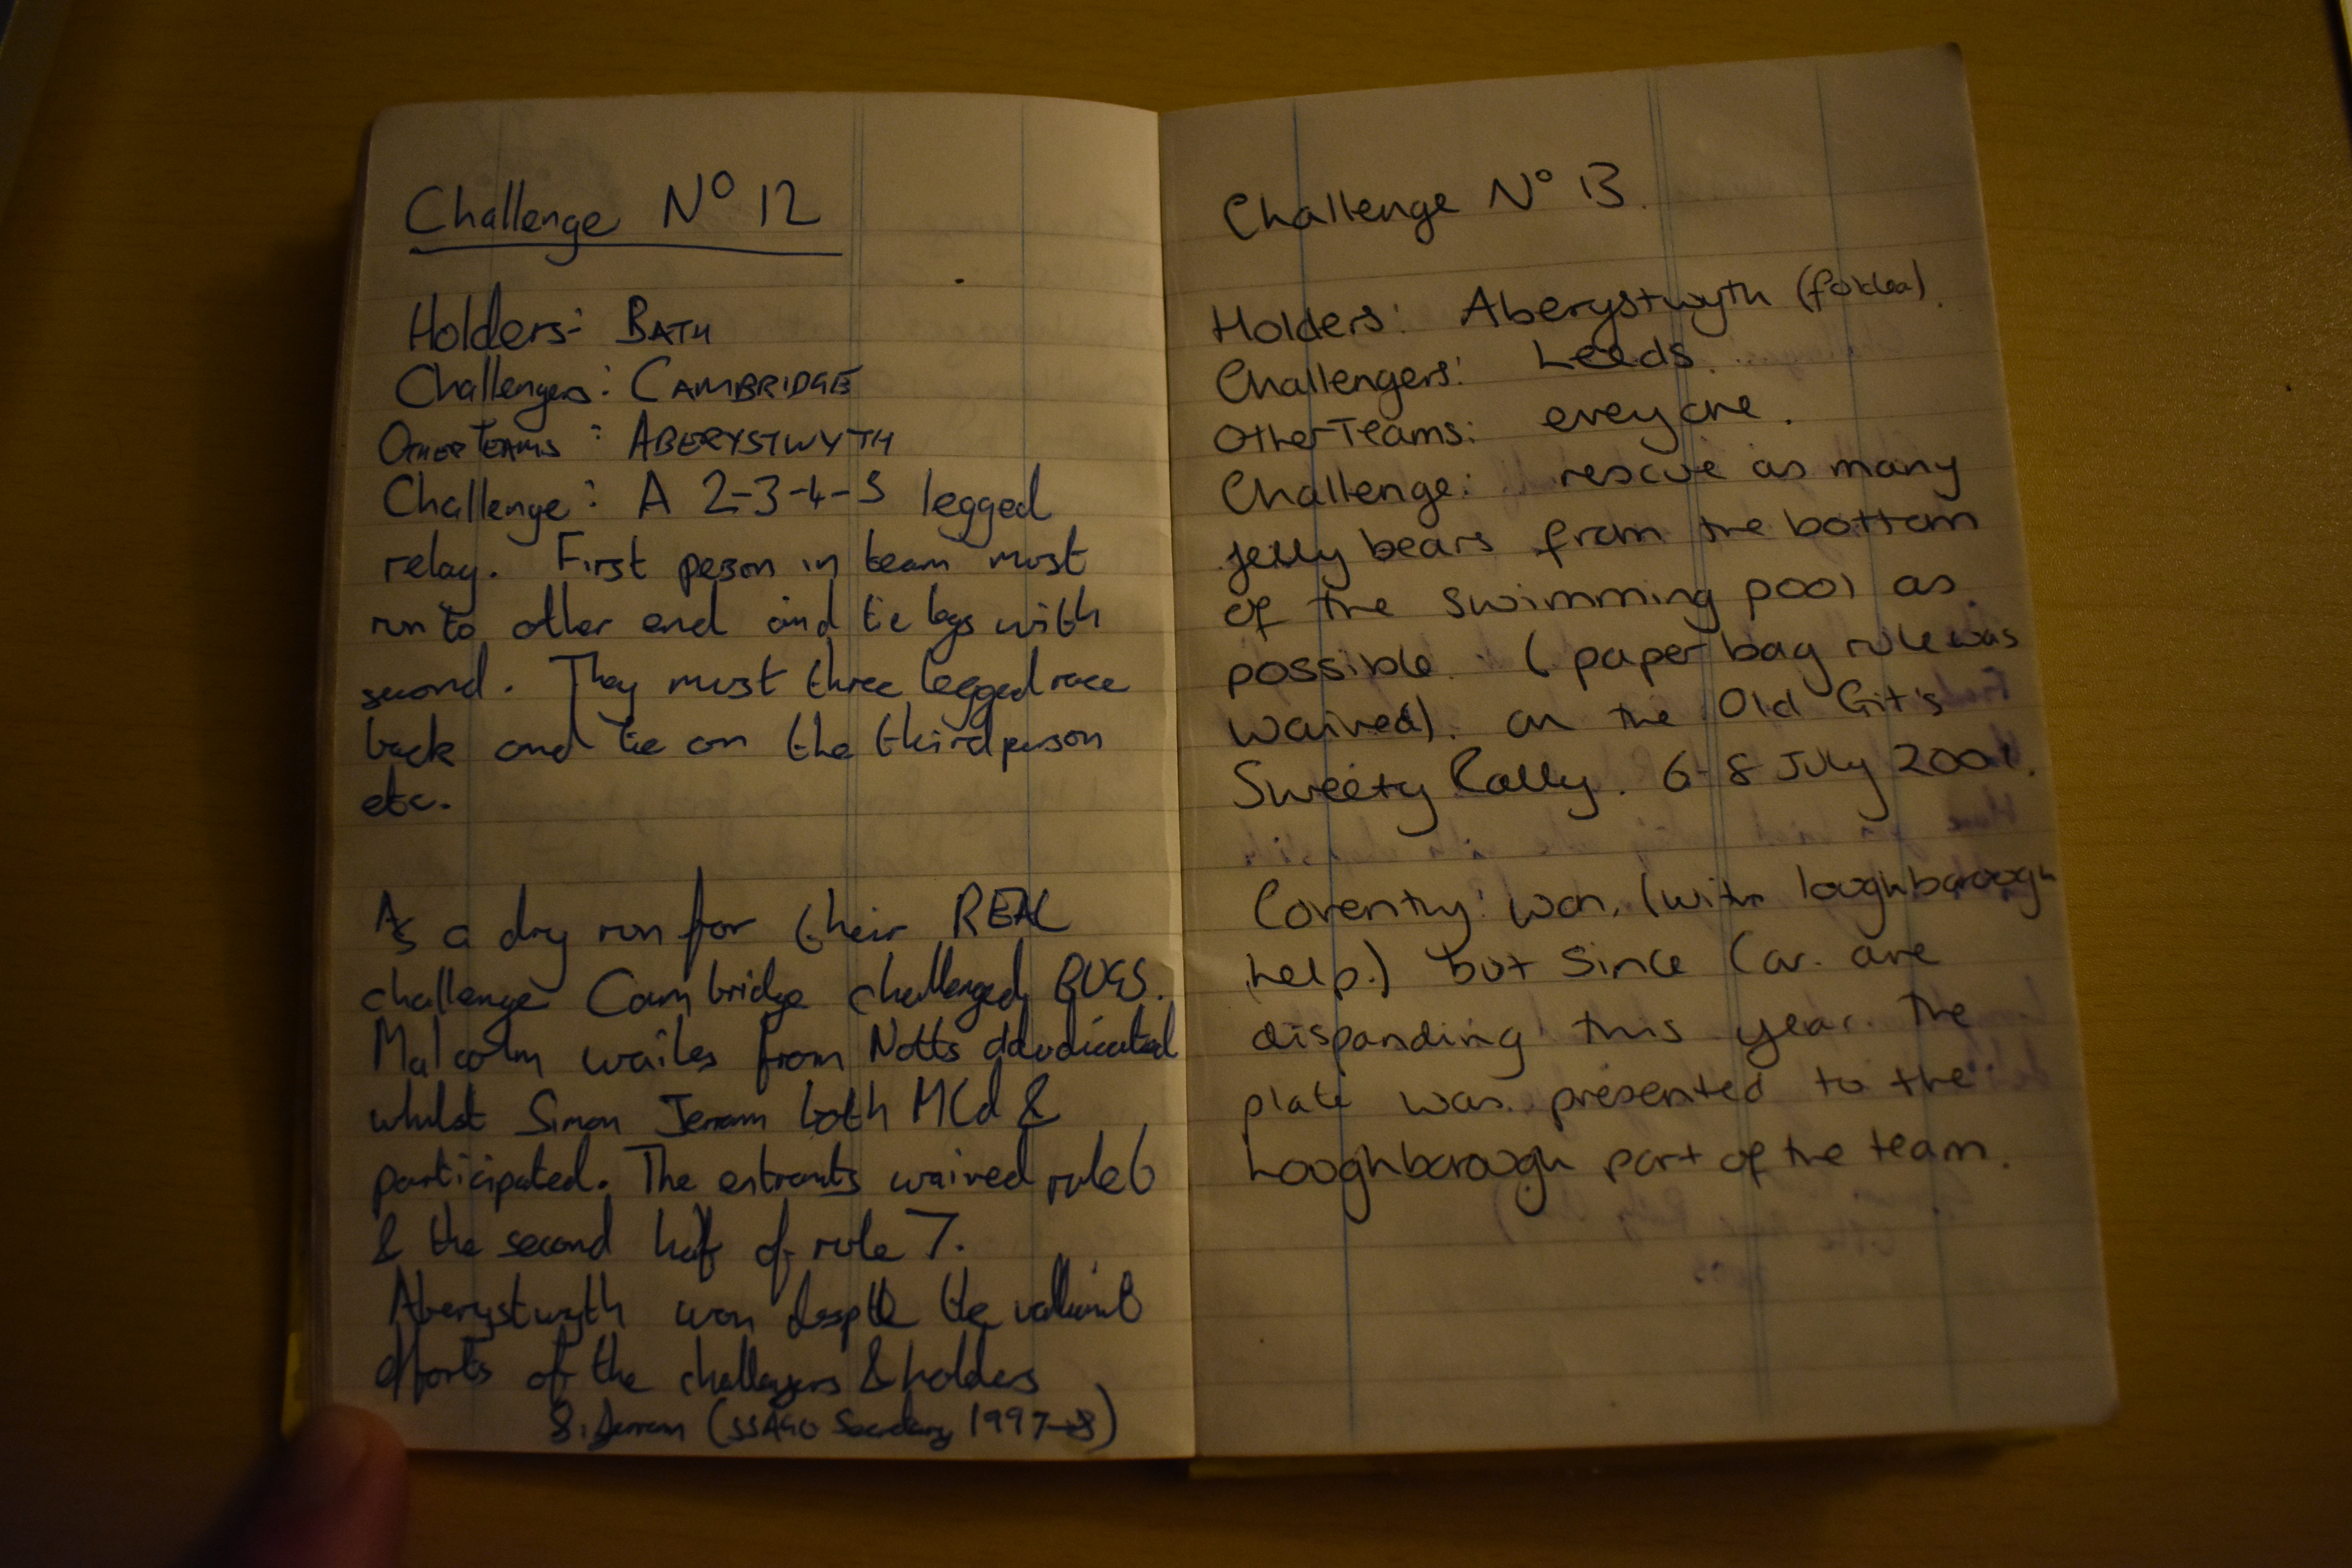 Challenge Nº 12
Holders:- BATH
Challengers: CAMBRIDGE
OTHER TEAMS: ABERYSTWYTH
Challenge: A 2-3-4-5 legged
relay. First person in team must
run to other end and tie legs with
second. They must three legged race
back and tie on the third person
etc.
As a dry run for their REAL
challenge Cambridge challenged BUGS.
Malcolm wailes from Notts
whilst Simon Jerram both MCd &
participated. The entrants waived rule 6
& the second half of rule 7.
Aberystwyth won despite the valiant
efforts of the challengers & holders
S. Jerram (SSAGO Secretary 1997-8)
Challenge Nº 13.
Holders: Aberystwyth
Challengers: Leeds.
Other Teams: everyone.
Challenge: rescue as many
jelly bears from the bottom
of the swimming pool as
possible. (paper bag rule was
waived). on the Old Git's
Sweety Rally. 6-8 July 2001.
Coventry won, (with loughborough
help.) but since Cov. are
dispanding this year the
plate was presented to the
Loughborough part of the team.